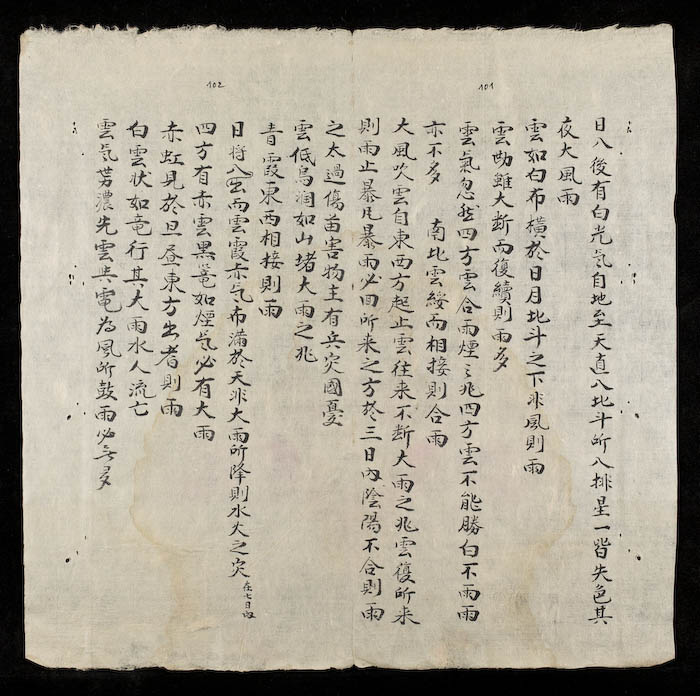 101
日入後有白光気自地至天直入北斗所入排星一皆失色其
夜大風雨
雲如白布橫於日月北斗之下非風則雨
雲雖大断而復續則雨多
雲氣忽然四方雲合雨煙之兆四方雲不能勝白不雨雨
亦不多 南北雲綬而相接則合雨
大風吹雲自東西方起止雲往来不断大雨之兆雲復所来
則雨止暴凡暴雨必回所来之方於三日內陰陽不合則雨
102
之太過傷苗害物主有兵灾國憂
雲低烏潤如山堵大雨之兆
青霞東西相接則雨
日将入雲而雲霞赤气布滿於天非大雨所降則水火之灾在七日內
四方有赤雲黑如煙气必有大雨
赤虹見於旦昼東方出者則雨
白雲状如竜行其大雨水人流亡
雲気濃光雲共電為風所鼓雨必无多